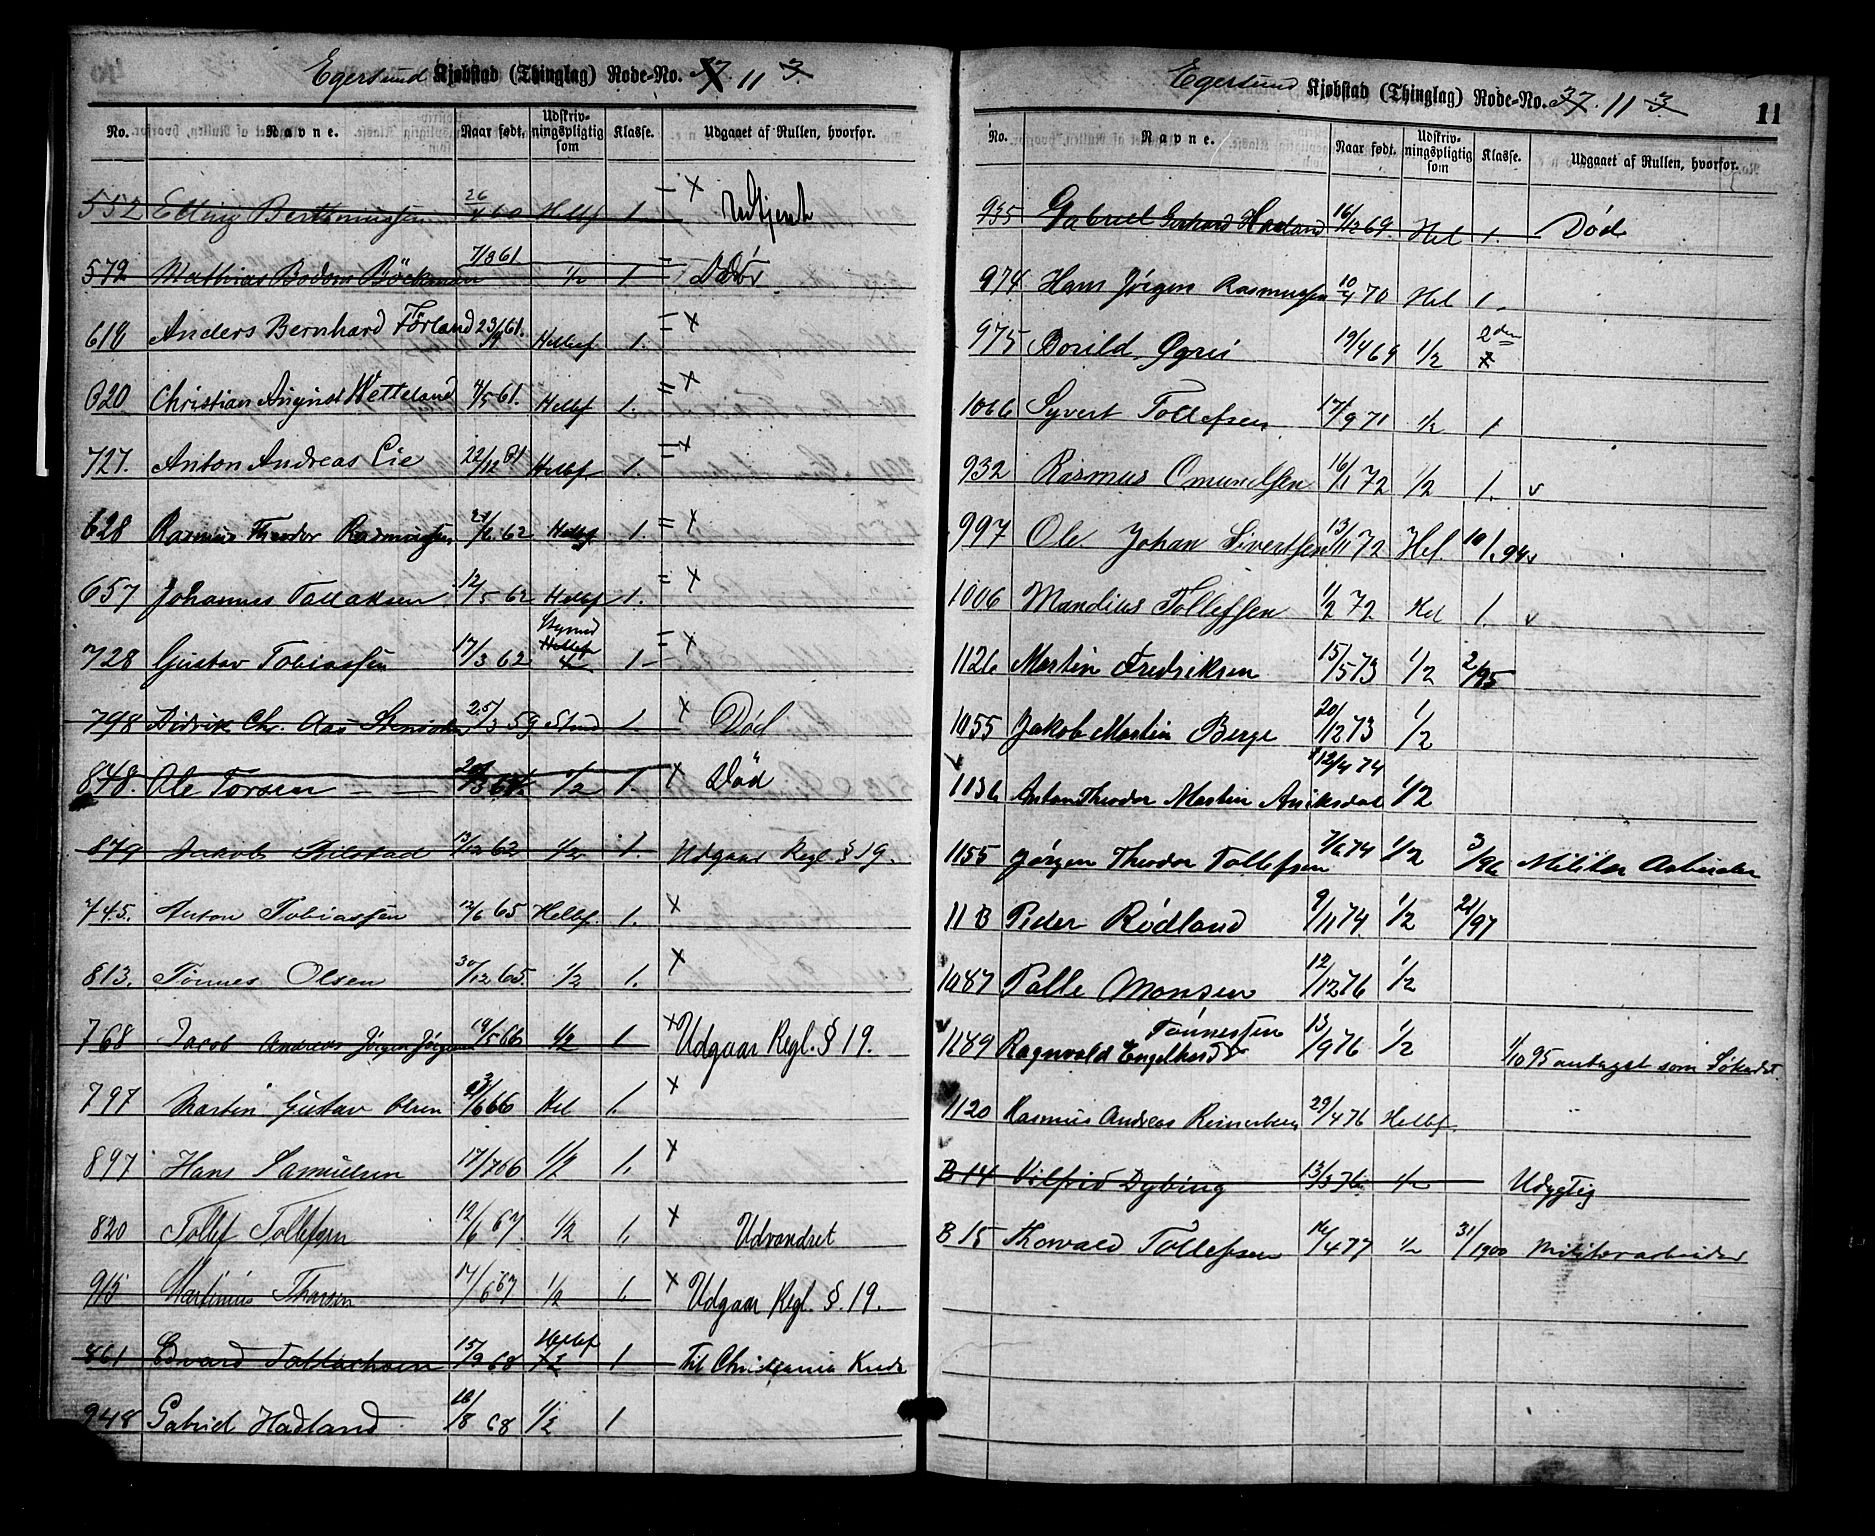 Egersund Kjøbstad (Thinglag) Rode-No. 37. 11 3.
No. Navne. Naar født. Udskrivningspligtig som Klasse. Udgaaet af Rullen, hvorfor.
552 Elling Berthinussen 26/4 60 Helbf 1. = x Udtjent
572 Mathias Bodom Böckman 7/3 61 1/2 1 =
618 Anders Bernhard Förland 23/9 61. Helbef. 1. = x
620 Christian August Wetteland 4/5 61. Helbf 1. = x
727. Anton Andreas Lie 22/12 61 Helbf. 1. = x
628 Rasmus Theodor Rasmussen 21/6 62 Helbf 1. = x
657 Johannes Tallaksen 12/5 62 Helbf 1. = x
728 Gustav Tobiassen 17/3 62 Helbf 1 = x
798 Didrik Chr. Aas 25/3 59 Stud 1. x Død
848. Ole Torsen 1/2 1. x Død
879 Jakob 13/12 62 1/2 1. Udgaar Regl § 19.
745. Anton Tobiassen 12/6 65 Helbf. 1. x
813. Tönnes Olsen 30/12 65. 1/2 1. x
768 Jacob Andreas Jørgen Jørgensen 19/5 66 1/2 1. x Udgaar Regl. § 19.
797 Martin Gustav Olsen 23/6 66 Hel 1. x
897 Hans Samuelsen 17/7 66 1/2 1. x
820 Tollef Tollefsen 12/6 67. 1/2 1. x Udvandret
915 Martinius Thorsen 17/6 67 1/2 1. x Udgaar Regl. §. 19.
861 Edvard Tallachsen 15/9 68 Helbf 1 Til Christiania Kreds
948 Gabriel Hadland 16/8 68 1/2 1
Egersund Kjøbstad (Thinglag) Rode-No. 37. 11 3. 11
No. Navne. Naar født. Udskrivningspligtig som Klasse. Udgaaet af Rullen, hvorfor.
935 Gabriel Gerhard Hadland 16/12 69. Hel 1. Død
974 Hans Jørgen Rasmussen 10/4 70 Hel 1.
975 Borild Øgrei 19/4 69 1/2 2den
1066 Syvert Tollefsen 17/9 71 1/2 1
932 Rasmus Omundsen 16/1 72 1/2 1. v
997 Ole Johan Sivertsen 13/11 72 Hel 10/1. 94 v
1006 Mandius Tollefsen 1/2 72 Hel 1. v
1126 Martin Fredriksen 15/5 73 1/2 2/95
1055 Jakob Martin Berge 20/12 73 1/2
1136 Anton Theodor Martin Aniksdal 12/4 74 1/2
1155 Jørgen Theodor Tollefsen 7/6 74 1/2 3/96 Militær Arbeider
11 B Peder Rödland 9/11 74 1/2 21/97
1087 Palle Monsen 12/12 76 1/2
1189 Ragnvald Engelhard Tönnessen 13/9 76 1/2 1/10 95 antaget som Søkadet.
1120 Rasmus Andreas Reinerberg 29/4 76 Helbf.
B 14 Vilfrid Dybing 13/3 76 1/2 Udygtig
B 15 Thorvald Tollefsen 16/4 77 1/2 31/1900 Militærarbeider